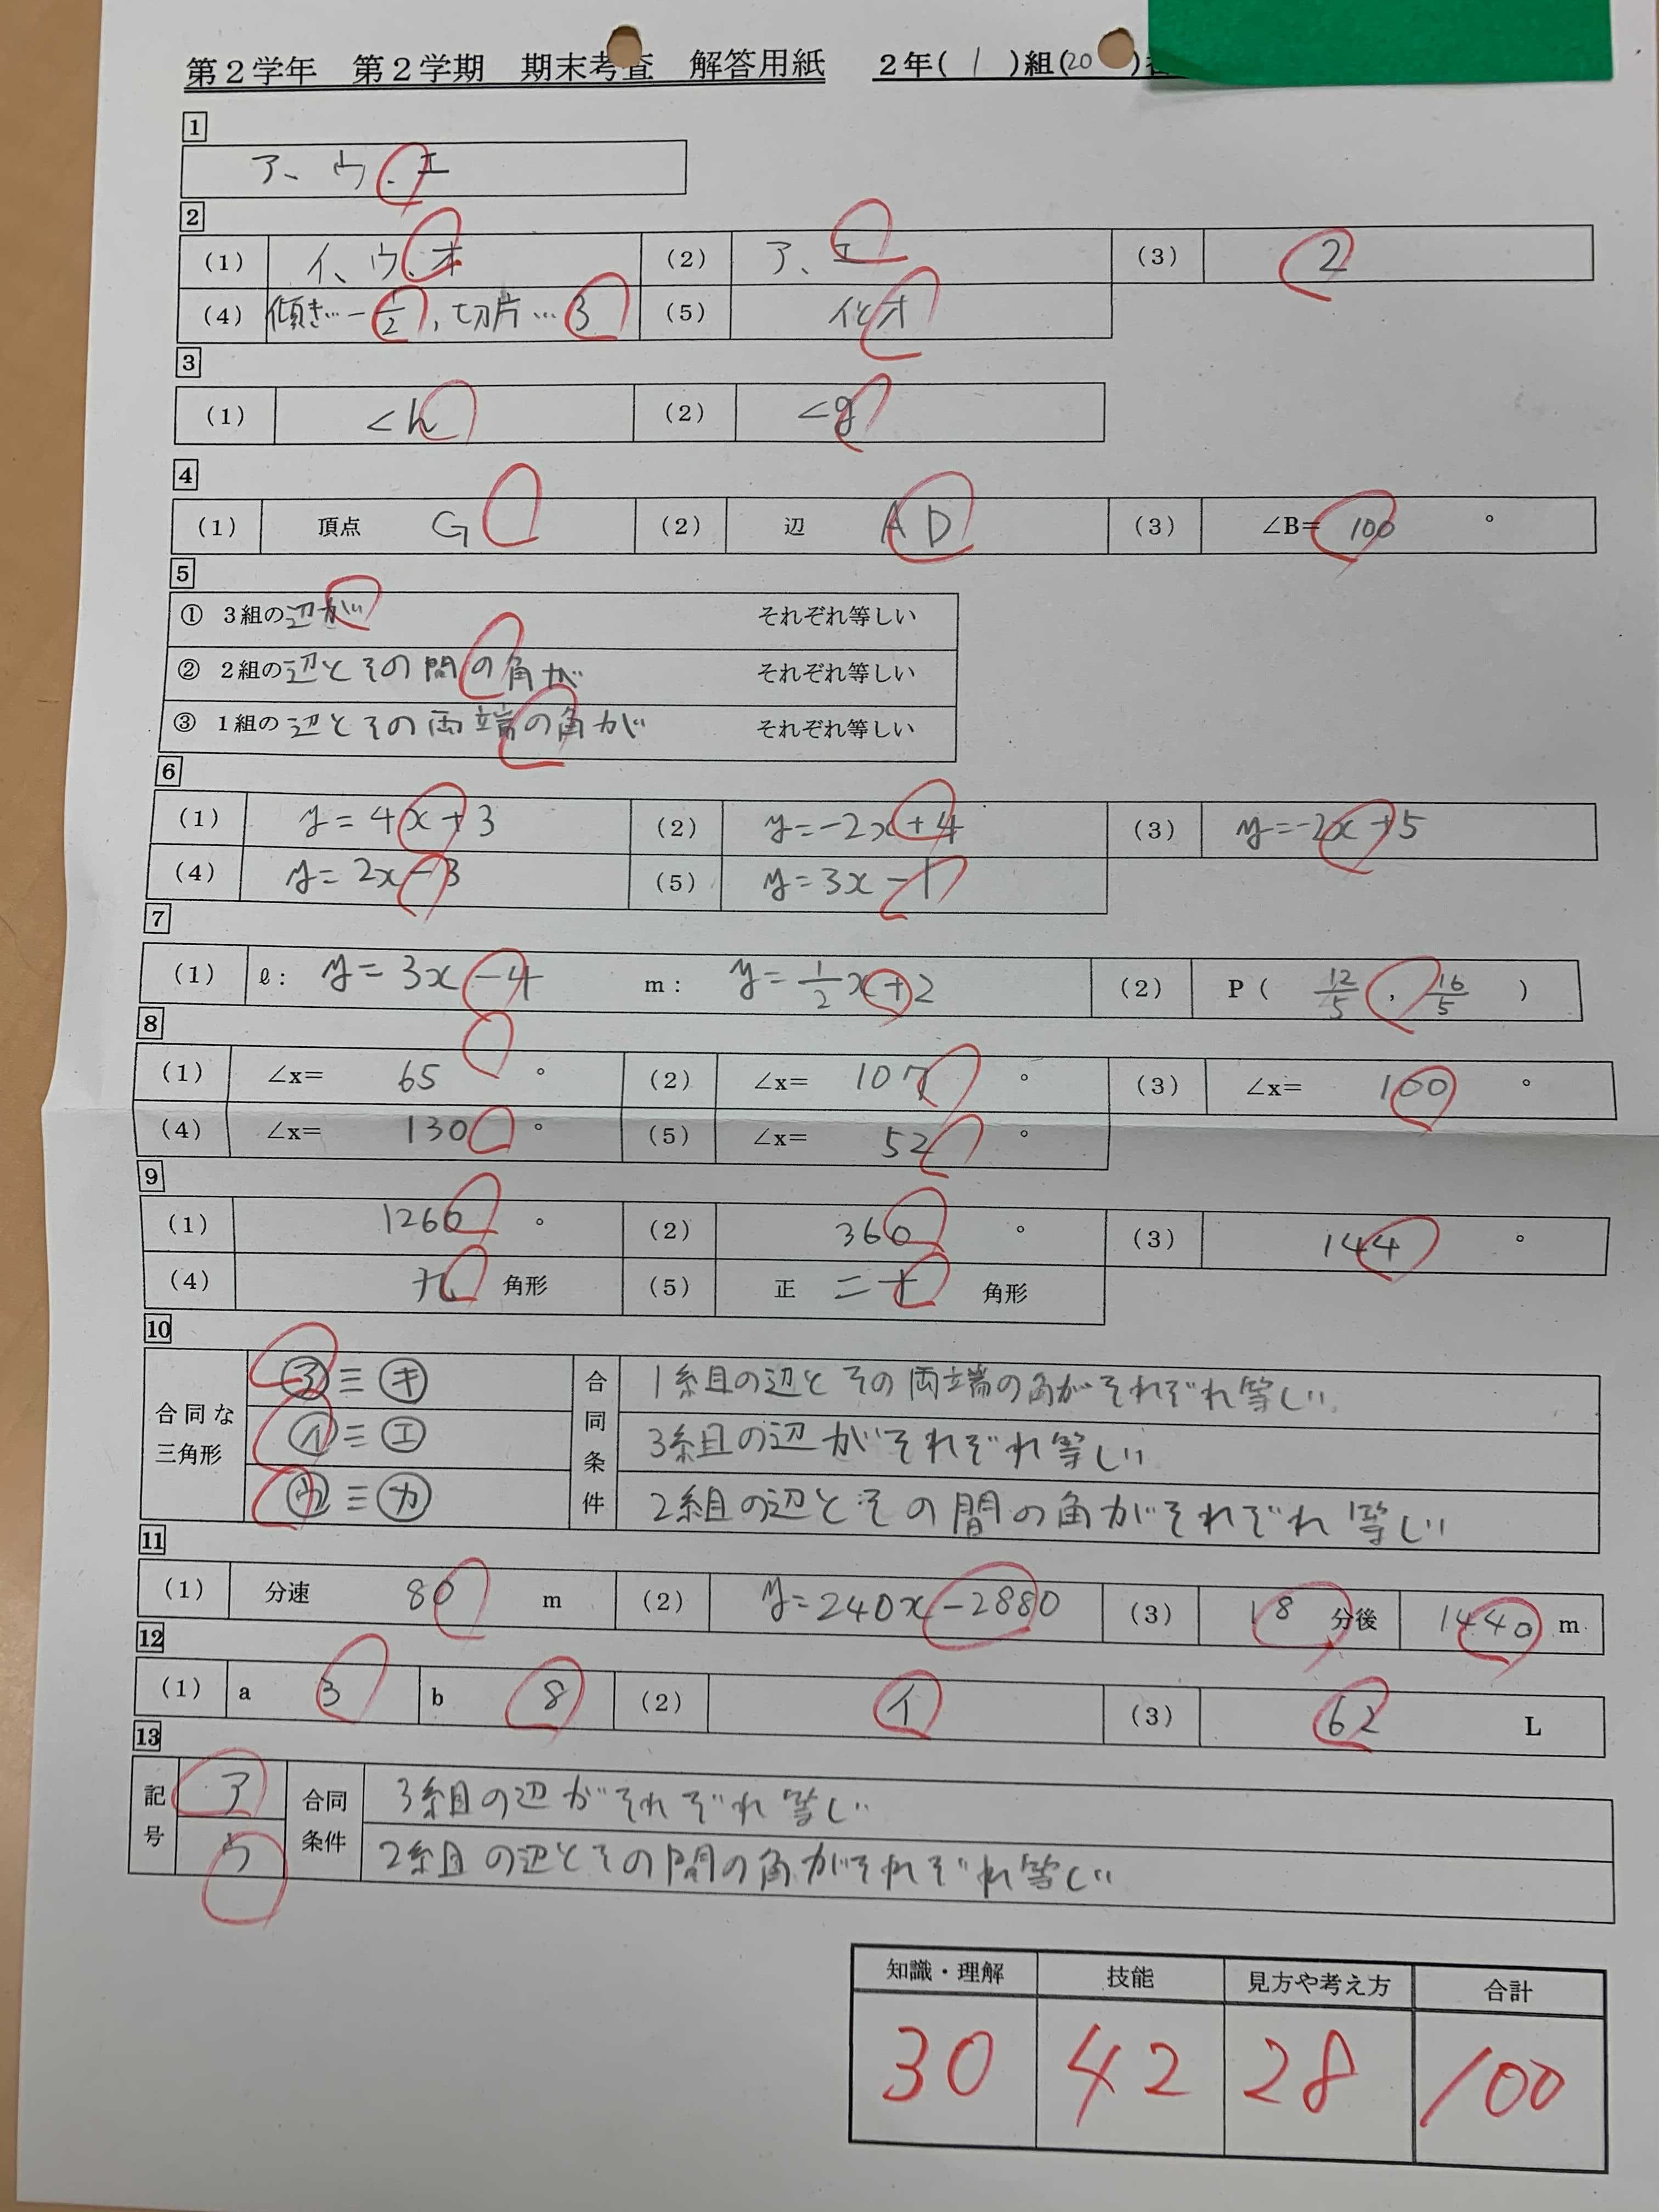 第2学年 第2学期 期末考査 解答用紙 2年( 1 )組(20 )
1
ア、ウ、エ
2
(1) イ、ウ、オ (2) ア、エ (3) 2
(4) 傾き…-1/2, 切片…3 (5) イとオ
3
(1) <h (2) <g
4
(1) 頂点 G (2) 辺 AD (3) ∠B= 100 °
5
① 3組の辺が それぞれ等しい
② 2組の辺とその間の角が それぞれ等しい
③ 1組の辺とその両端の角が それぞれ等しい
6
(1) y=4x+3 (2) y=-2x+4 (3) y=-2x+5
(4) y=2x-3 (5) y=3x-1
7
(1) ℓ: y=3x-4 m: y=1/2x+2 (2) P( 12/5 , 16/5 )
8
(1) ∠x= 65 ° (2) ∠x= 107 ° (3) ∠x= 100 °
(4) ∠x= 130 ° (5) ∠x= 52 °
9
(1) 1260 ° (2) 360 ° (3) 144 °
(4) 九 角形 (5) 正 二十 角形
10
合同な三角形 合同条件
㋐≡㋖ 1組の辺とその両端の角がそれぞれ等しい
㋑≡㋓ 3組の辺がそれぞれ等しい
㋒≡㋕ 2組の辺とその間の角がそれぞれ等しい
11
(1) 分速 80 m (2) y=240x-2880 (3) 18 分後 1440 m
12
(1) a 3 b 8 (2) イ (3) 62 L
13
記号 合同条件
ア 3組の辺がそれぞれ等しい
ウ 2組の辺とその間の角がそれぞれ等しい
知識・理解 技能 見方や考え方 合計
30 42 28 100